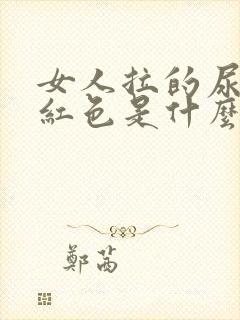 女人拉的尿
紅色是什麼
鄭茜